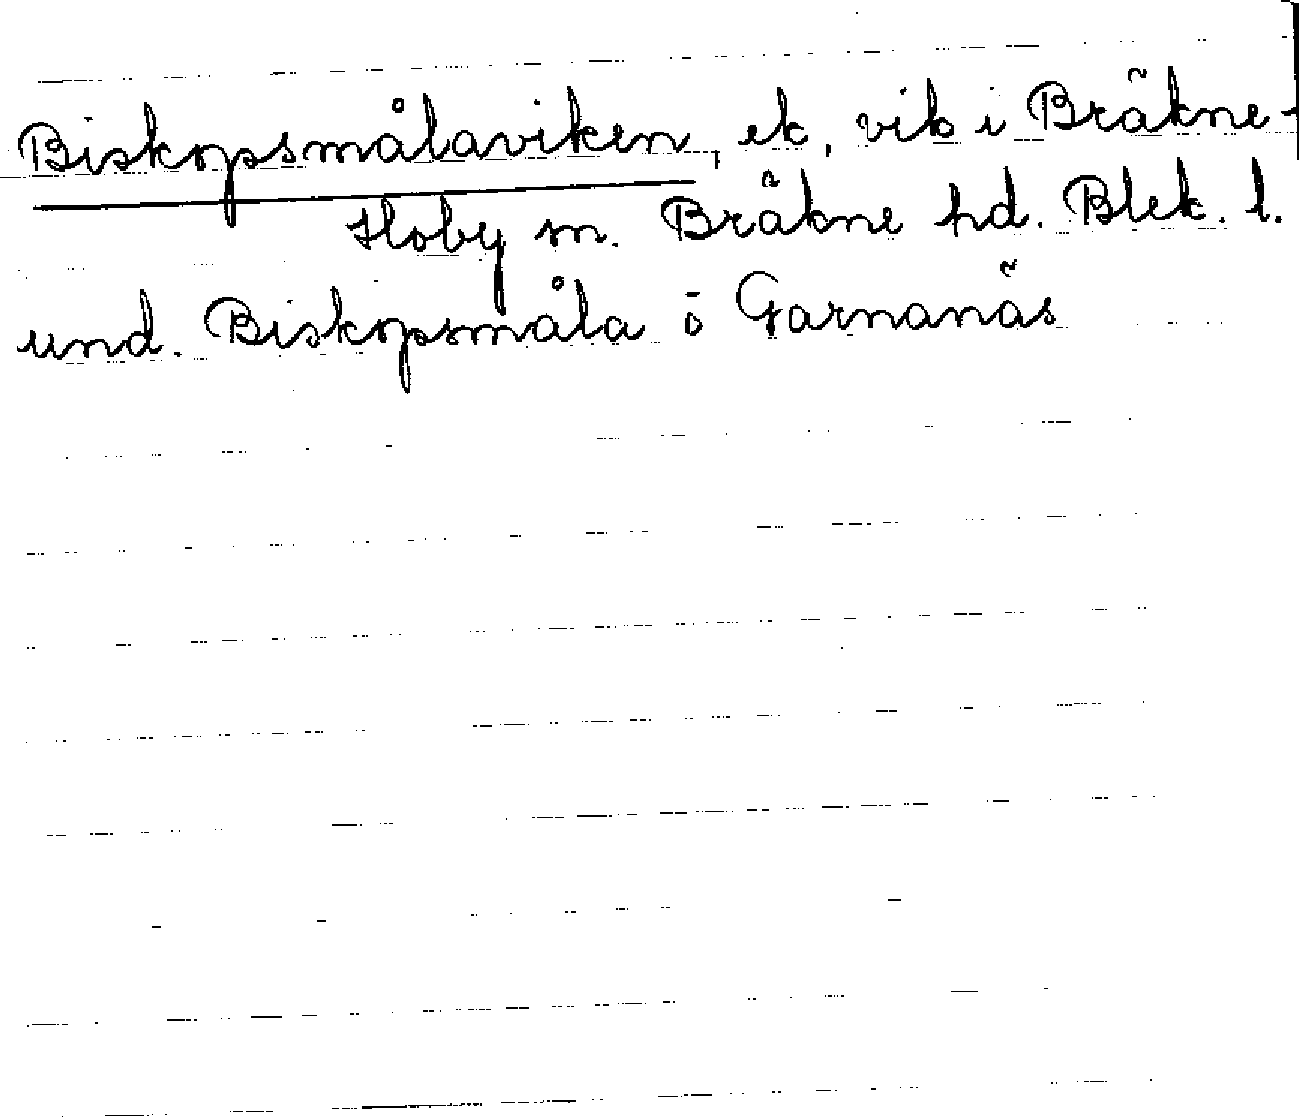 Biskopsmålaviken, ek, vik i Bräkne-
Hoby sn. Bräkne hd. Blek. l.
und. Biskopsmåla ö Garnanäs